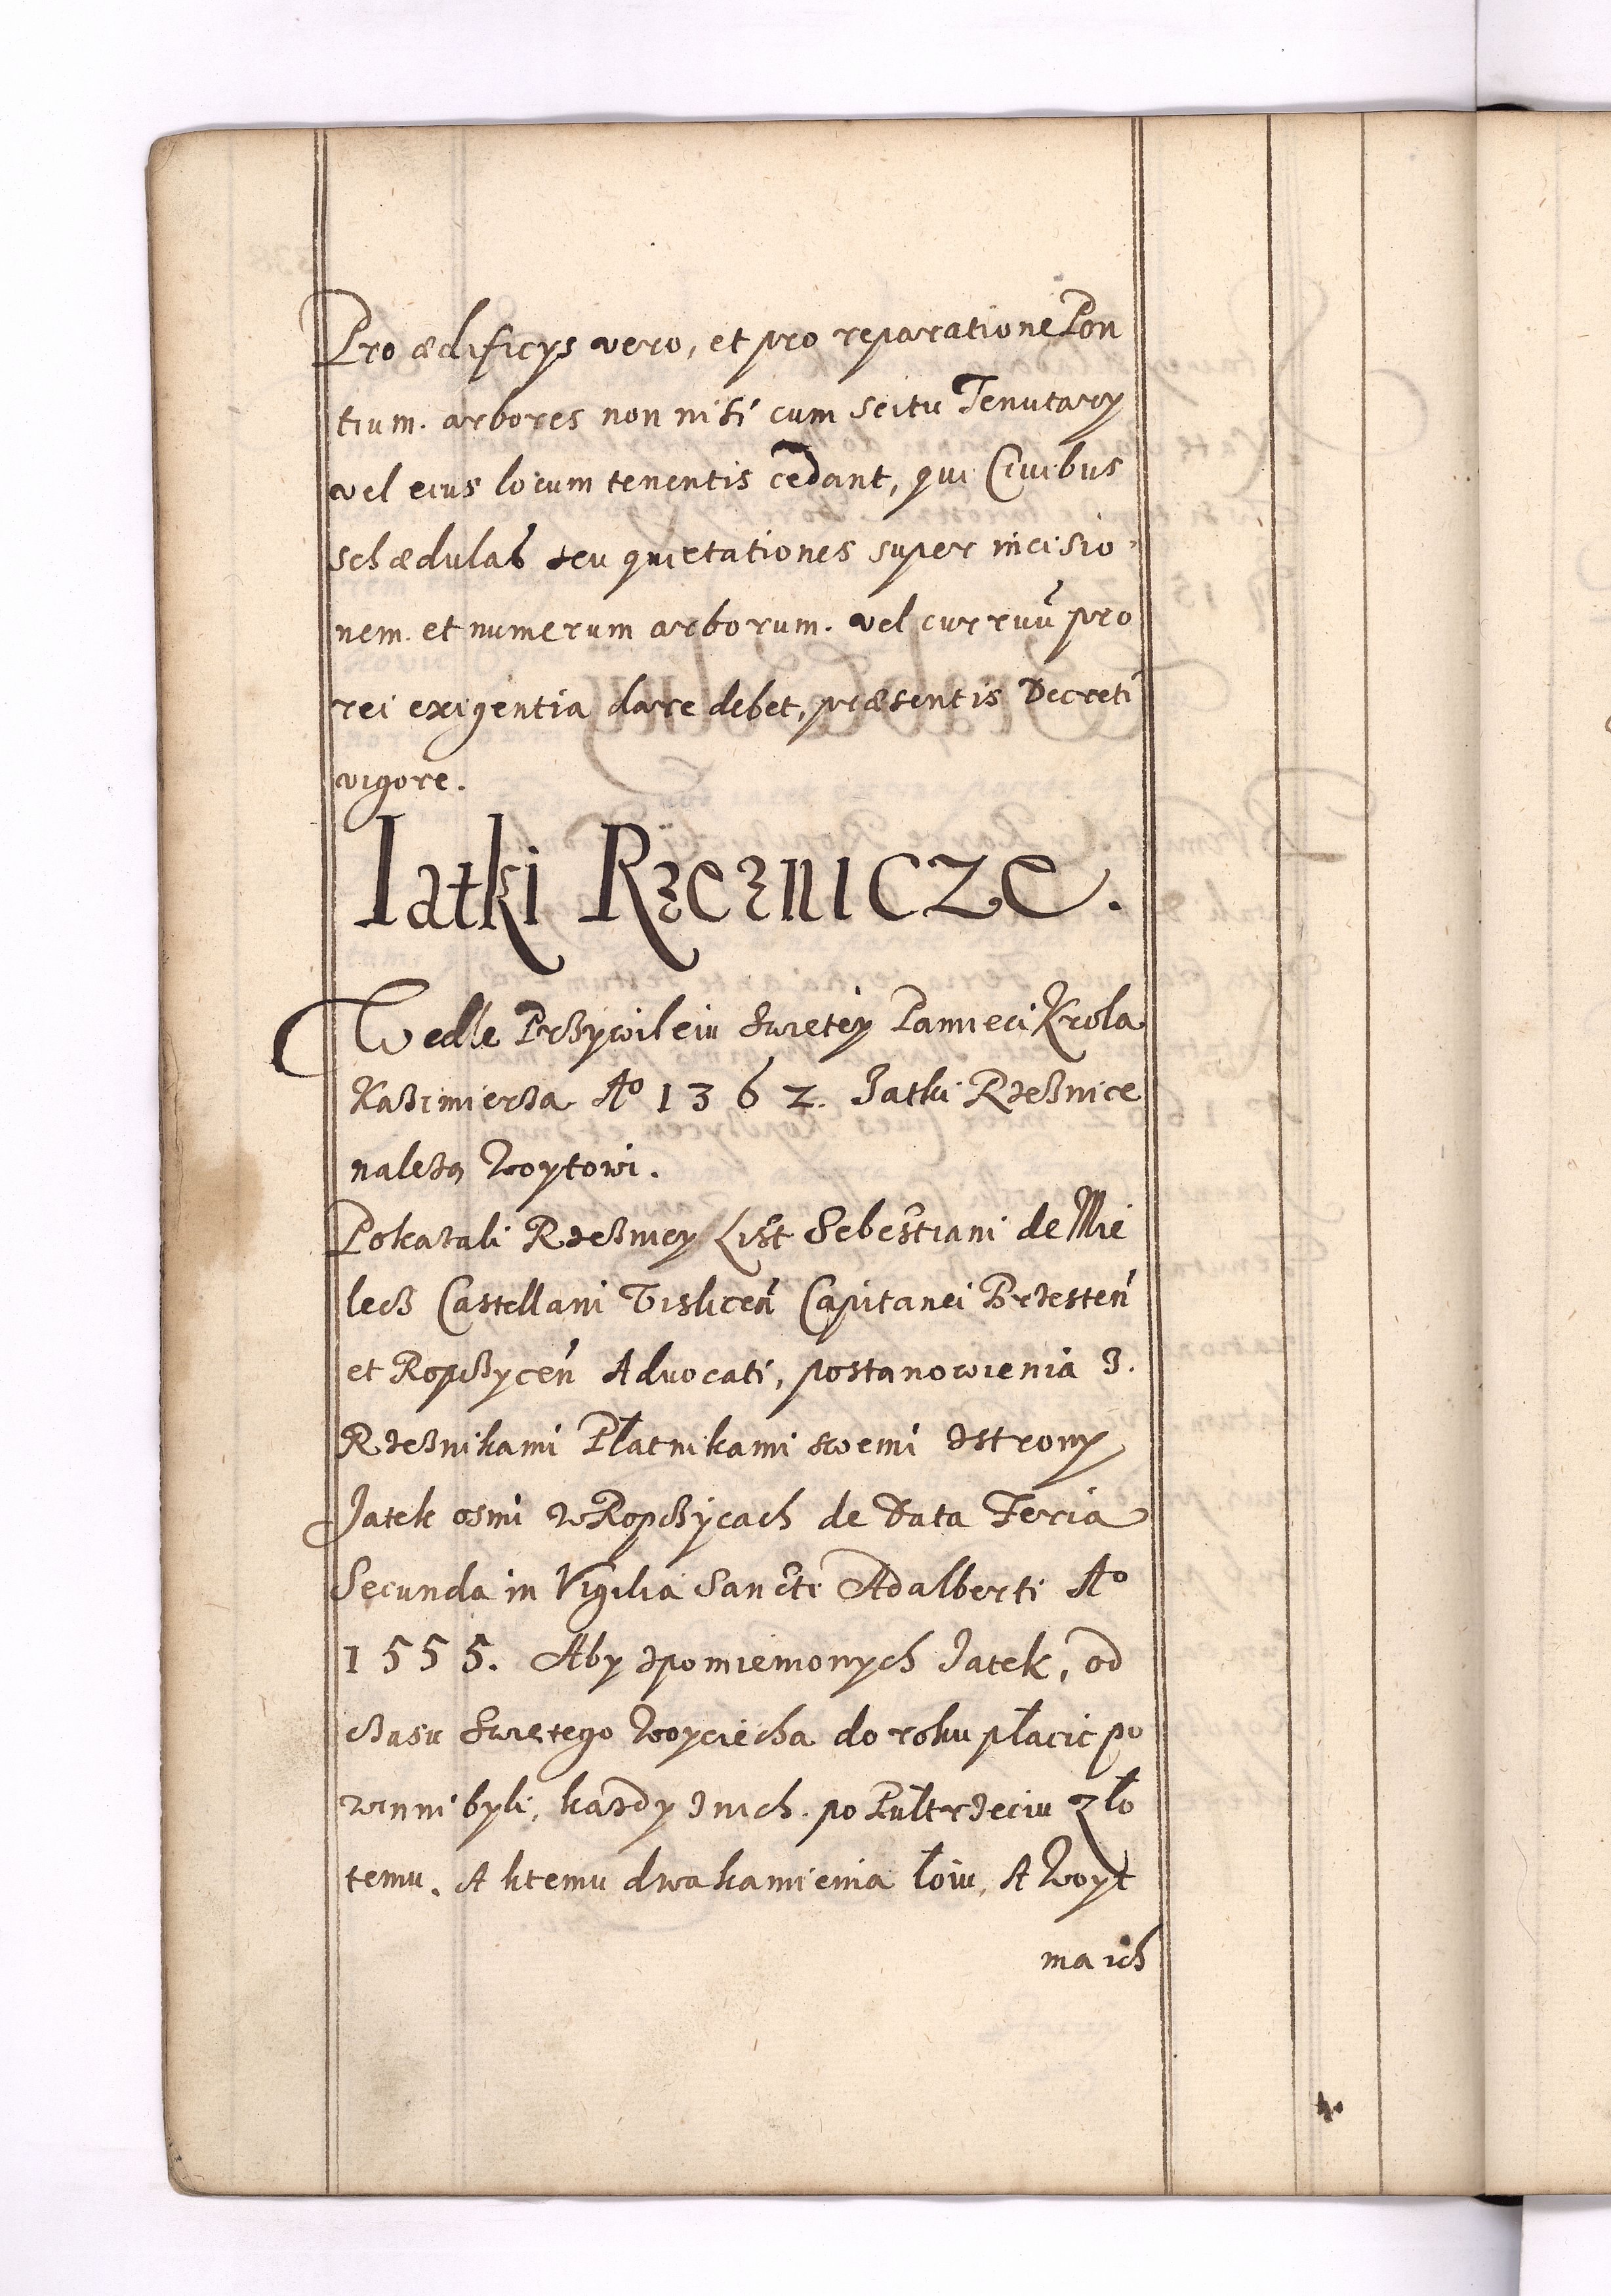 Pro ædificys vero, et pro reparatione Pon
tium. arbores non nisi cum scitu Tenutary
vel eius locum tenentis cedant, qui Ciuibus
schædulas seu quietationes super incisio-
nem. et numerum arborum. vel curruū pro
rei exigentia dare debet, præsentis Decreti
vigore.
Iatki Rzeznicze.
Wedle Przywileiu Swietey Pamieci Krola
Kazimierza Aº 1362. Jatki Rzeznice
naleza Woytowi.
Pokazali Rzeznicy List Sebestiani de Mie
lecz Castellani Vislicen̄ Capitanei Brzesten̄
et Ropczycen̄ Advocati, postanowienia z.
Rzeznikami Płatnikami swemi zstrony
Jatek osmi w Ropczycach de Data Feria
Secunda in Vigilia Sancti Adalberti Aº
1555. Aby zpomienionych Jatek, od
czasu Swietego Woyciecha do roku płacic po
winni byli, kazdy znich. po Pułtrzeciu zło
temu. A ktemu dwa kamienia łoiu, A Woyt
ma ich